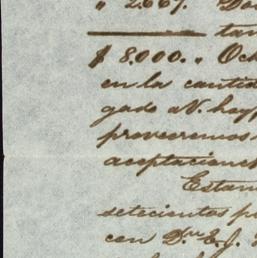 " 2.667. Do
tan
$ 8.000. " Och
en la cantid
gado a V. hoy,
proveeremos
aceptacione
Estam
setecientos p
con Dn. E. J.